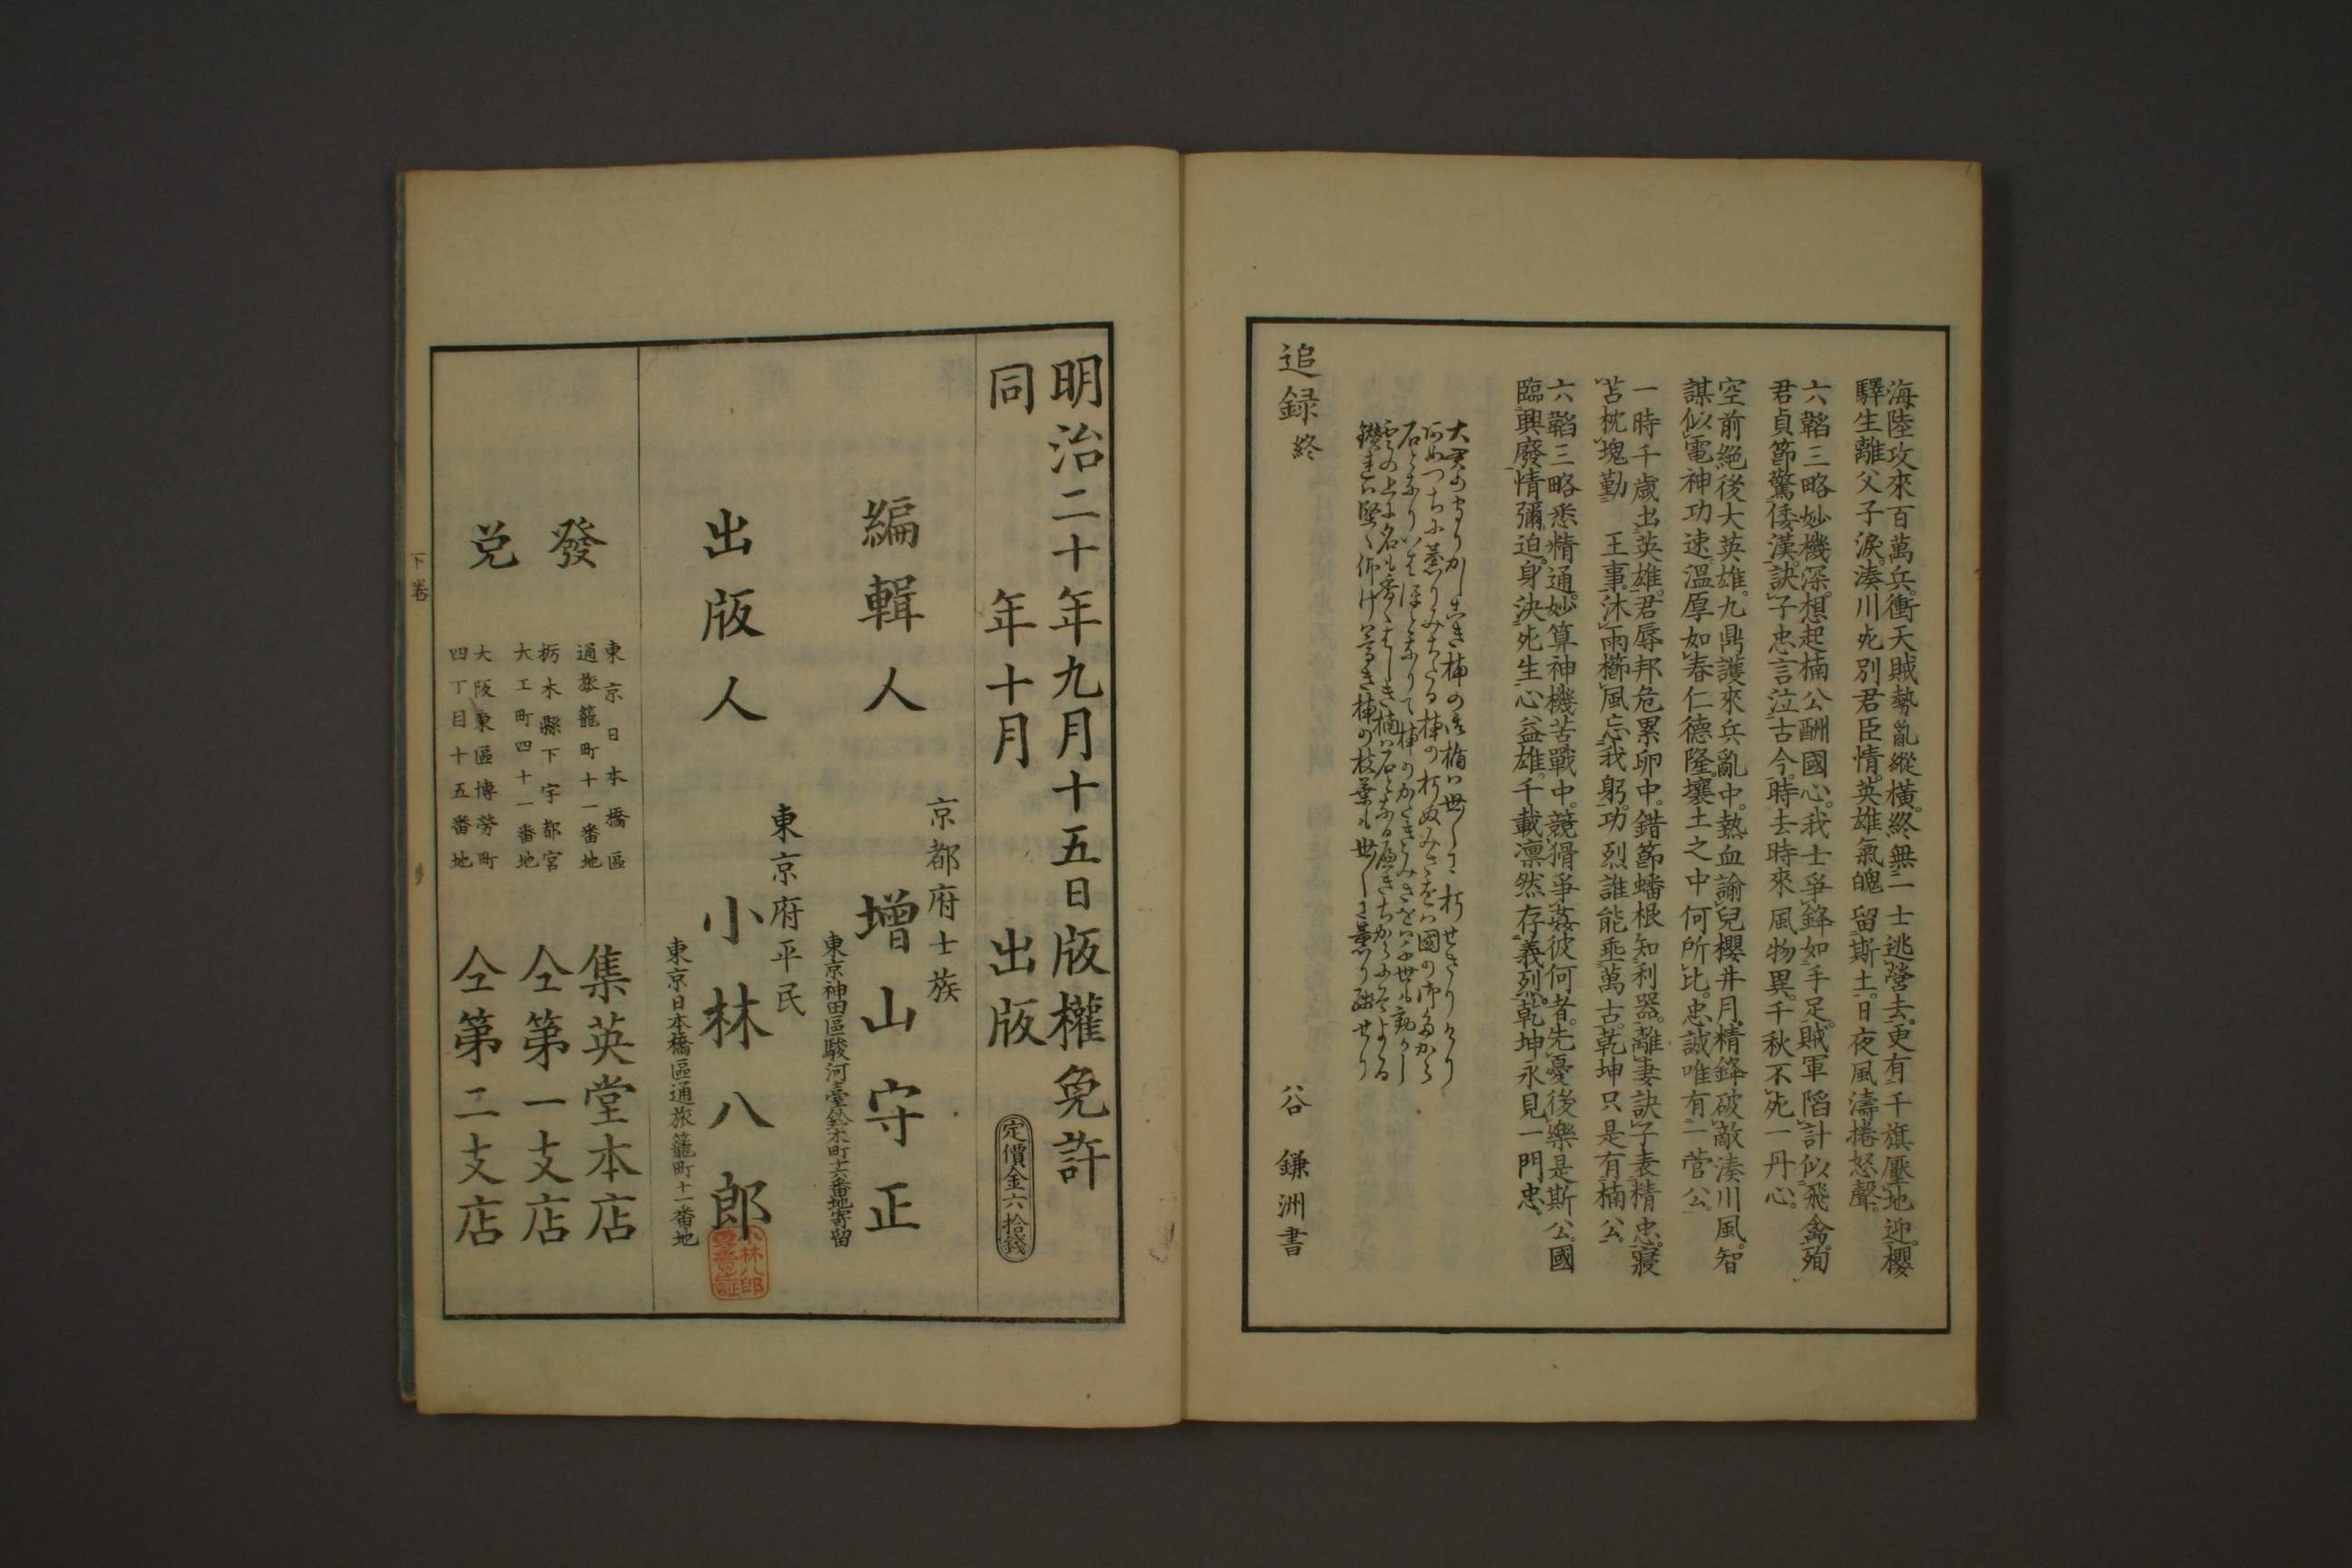 海陸攻來百萬兵。衝天賊勢亂縱橫。終無一士逃營去。更有千旗壓地迎。櫻
驛生離父子淚。湊川死別君臣情。英雄氣魄留斯土。日夜風濤捲怒聲。
六韜三略妙機深。想起楠公酬國心。我士爭鋒如手足。賊軍陷計似飛禽。殉
君貞節驚倭漢。訣子忠言泣古今。時去時來風物異。千秋不死一丹心。
空前絕後大英雄。九鼎護來兵亂中。熱血諭兒櫻井月。精鋒破敵湊川風。智
謀似電神功速。溫厚如春仁德隆。壤土之中何所比。忠誠唯有一菅公。
一時千歲出英雄。君辱邦危累卵中。錯節蟠根知利器。離妻訣子表精忠。寢
苫枕塊勤　王事。沐雨櫛風忘我躬。功烈誰能垂萬古。乾坤只是有楠公。
六韜三略悉精通。妙算神機苦戰中。競猾爭姦彼何者。先憂後樂是斯公。國
臨興廢情彌迫。身決死生心益雄。千載凛然存義烈。乾坤永見一門忠。
追録終
谷鎌洲書
明治二十年九月十五日版權免許
同　年十月　出版
定價金六拾錢
京都府士族
編輯人　增山守正
東京神田區駿河臺鈴木町十六番地寄留
東京府平民
出版人　小林八郎
東京日本橋區通旅籠町十一番地
發兌
東京日本橋區
通旅籠町十一番地
集英堂本店
栃木縣下宇都宮
大工町四十一番地
仝第一支店
大阪東區博勞町
四丁目十五番地
仝第二支店
下卷